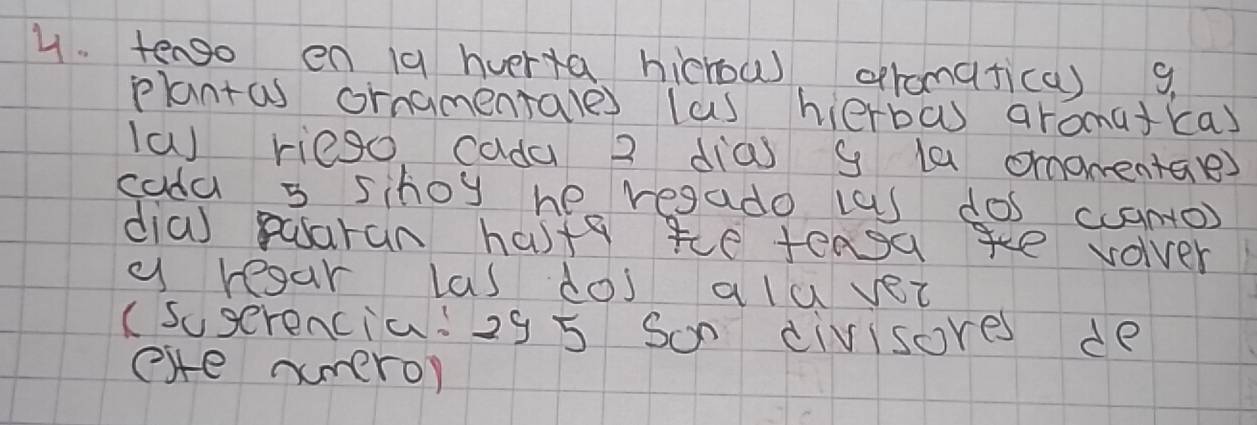 4. tengo en la huerta hierbas aromaticas y
plantas ornamentales las hierbas aromaticas
las riego cada 2 dias y la ornamentales
cada 5 sihoy he regado las dos cuantos
dias pasaran hasta que tenga que volver
a regar las dos ala vez
(sugerencia: 2y 5 son divisores de
este numero)